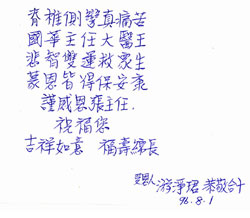 脊椎側彎真痛苦
國華主任大醫王
悲智雙運救衆生
蒙恩皆得保安康
謹感恩張主任.
祝福您
吉祥如意 福壽綿長
受恩人 游淨珺 恭敬合十
96.8.1